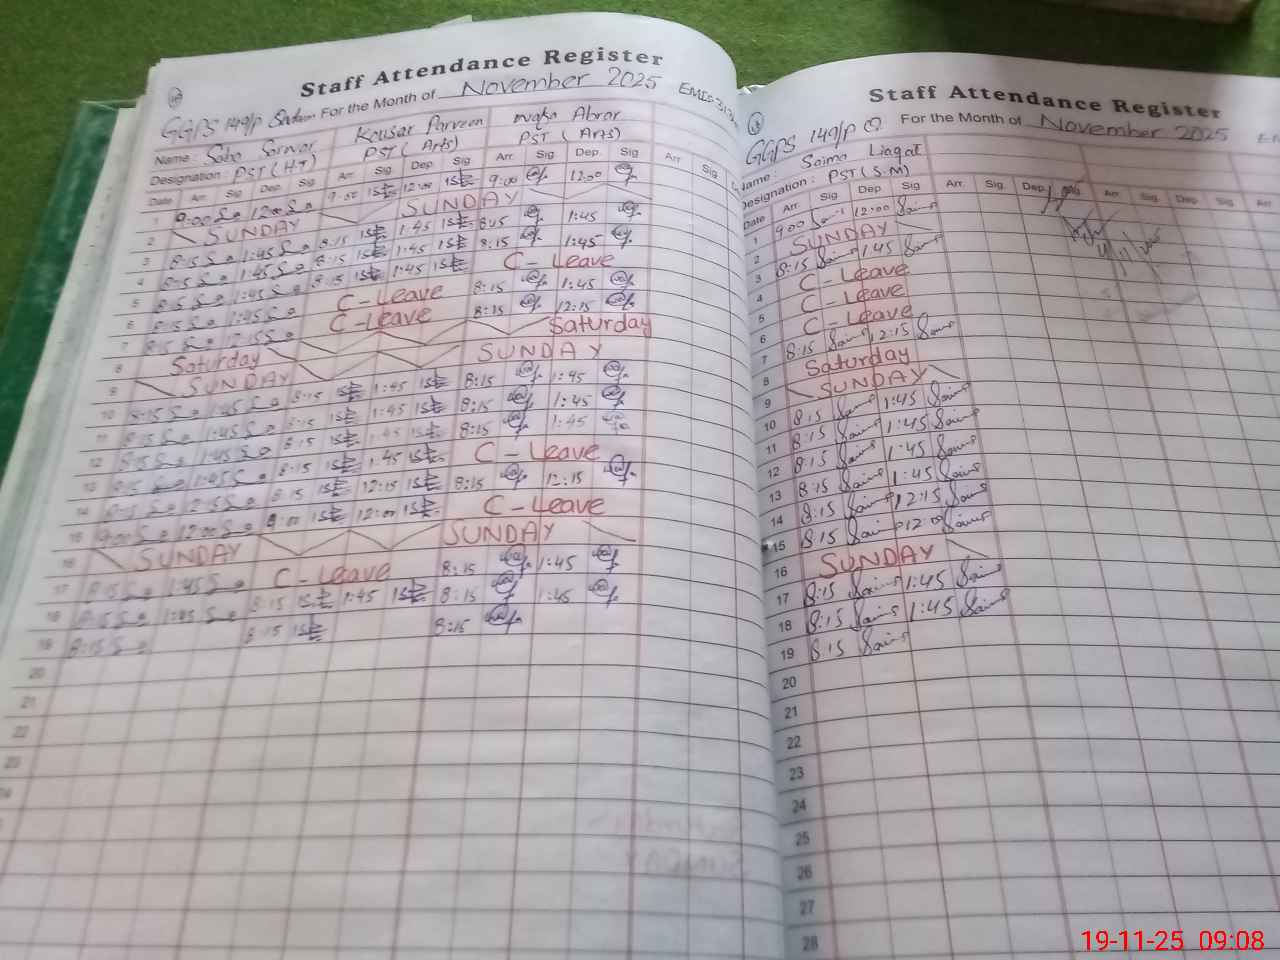 Staff Attendance Register
GGPS 149/P For the Month of November 2025
Name : Saba Sarwar Kousar Parveen Abrar
Designation : PST (HT) PST (Arts) PST (Arts)
Date Arr. Sig Dep. Sig Arr. Sig Dep Sig Arr. Sig Dep. Sig Arr Sig
1 9:00 12:00 9:00 12:00 9:00 12:00
2 SUNDAY SUNDAY
3 8:15 1:45 8:15 1:45 8:15 1:45
4 8:15 1:45 8:15 1:45 8:15 1:45
5 8:15 1:45 8:15 1:45 C-Leave
6 8:15 1:45 C-Leave 8:15 1:45
7 8:15 C-Leave 8:15 12:15
8 Saturday Saturday
9 SUNDAY SUNDAY
10 8:15 1:45 8:15 1:45 8:15 1:45
11 8:15 1:45 8:15 1:45 8:15 1:45
12 8:15 1:45 8:15 1:45 8:15 1:45
13 8:15 1:45 8:15 1:45 C-Leave
14 8:15 8:15 12:15 8:15 12:15
15 9:00 12:00 9:00 12:00 C-Leave
16 SUNDAY SUNDAY
17 8:15 1:45 C-Leave 8:15 1:45
18 8:15 1:45 8:15 1:45 8:15 1:45
19 8:15 8:15 8:15
20
21
22
23
Staff Attendance Register
GGPS 149/P For the Month of November 2025
Name : Saima Liaqat
Designation : PST (S.M)
Date Arr. Sig Dep. Sig Arr. Sig Dep. Sig Arr. Sig Dep. Sig Arr
1 9:00 12:00
2 SUNDAY
3 8:15 1:45
4 C-Leave
5 C-Leave
6 C-Leave
7 8:15 12:15
8 Saturday
9 SUNDAY
10 8:15 1:45
11 8:15 1:45
12 8:15 1:45
13 8:15 1:45
14 8:15 12:15
15 8:15 12:00
16 SUNDAY
17 8:15 1:45
18 8:15 1:45
19 8:15
20
21
22
23
24
25
26
27
28
19-11-25 09:08